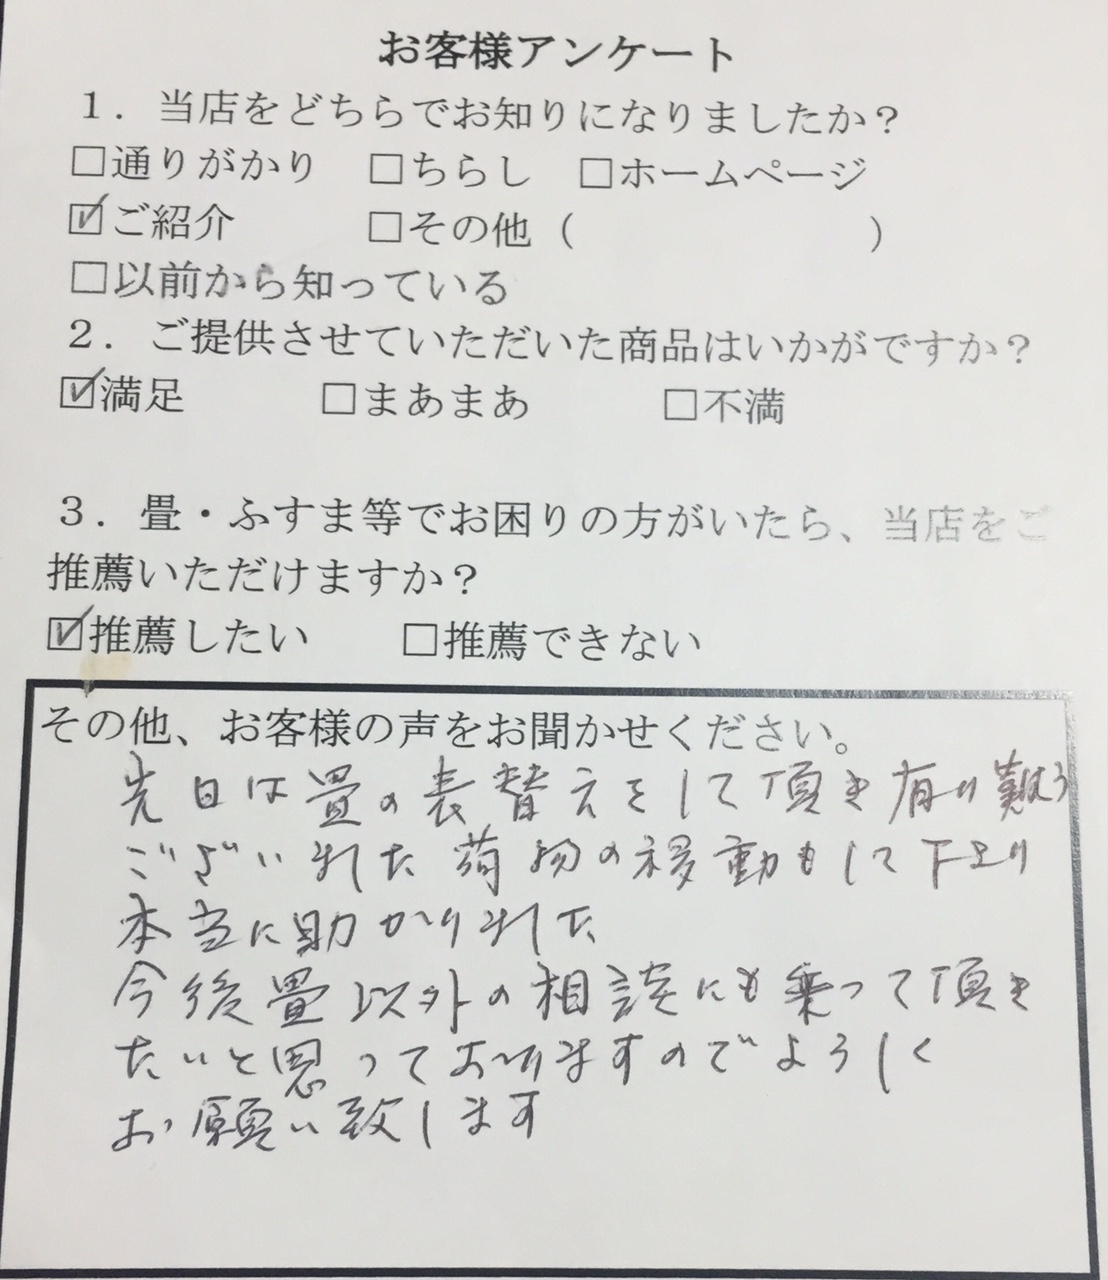 お客様アンケート
１．当店をどちらでお知りになりましたか？
□通りがかり　□ちらし　□ホームページ
☑ご紹介　　　□その他（　　　　　　　）
□以前から知っている
２．ご提供させていただいた商品はいかがですか？
☑満足　　　□まあまあ　　　□不満
３．畳・ふすま等でお困りの方がいたら、当店をご
推薦いただけますか？
☑推薦したい　　□推薦できない
その他、お客様の声をお聞かせください。
先日は畳の表替えをして頂き有り難う
ございました 荷物の移動もして下さり
本当に助かりました
今後畳以外の相談にも乗って頂き
たいと思っておりますのでよろしく
お願い致します